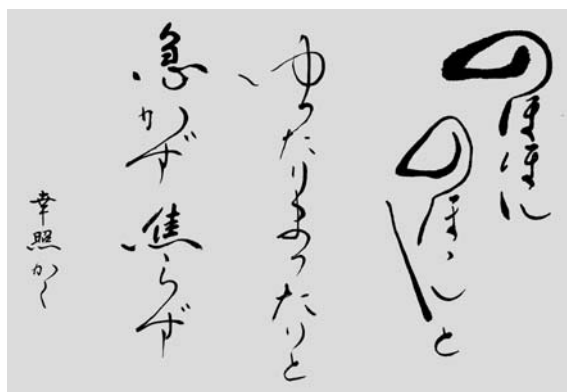 のほほん
のほゝんと
ゆったりまったりと
急がず焦らず
幸照かく